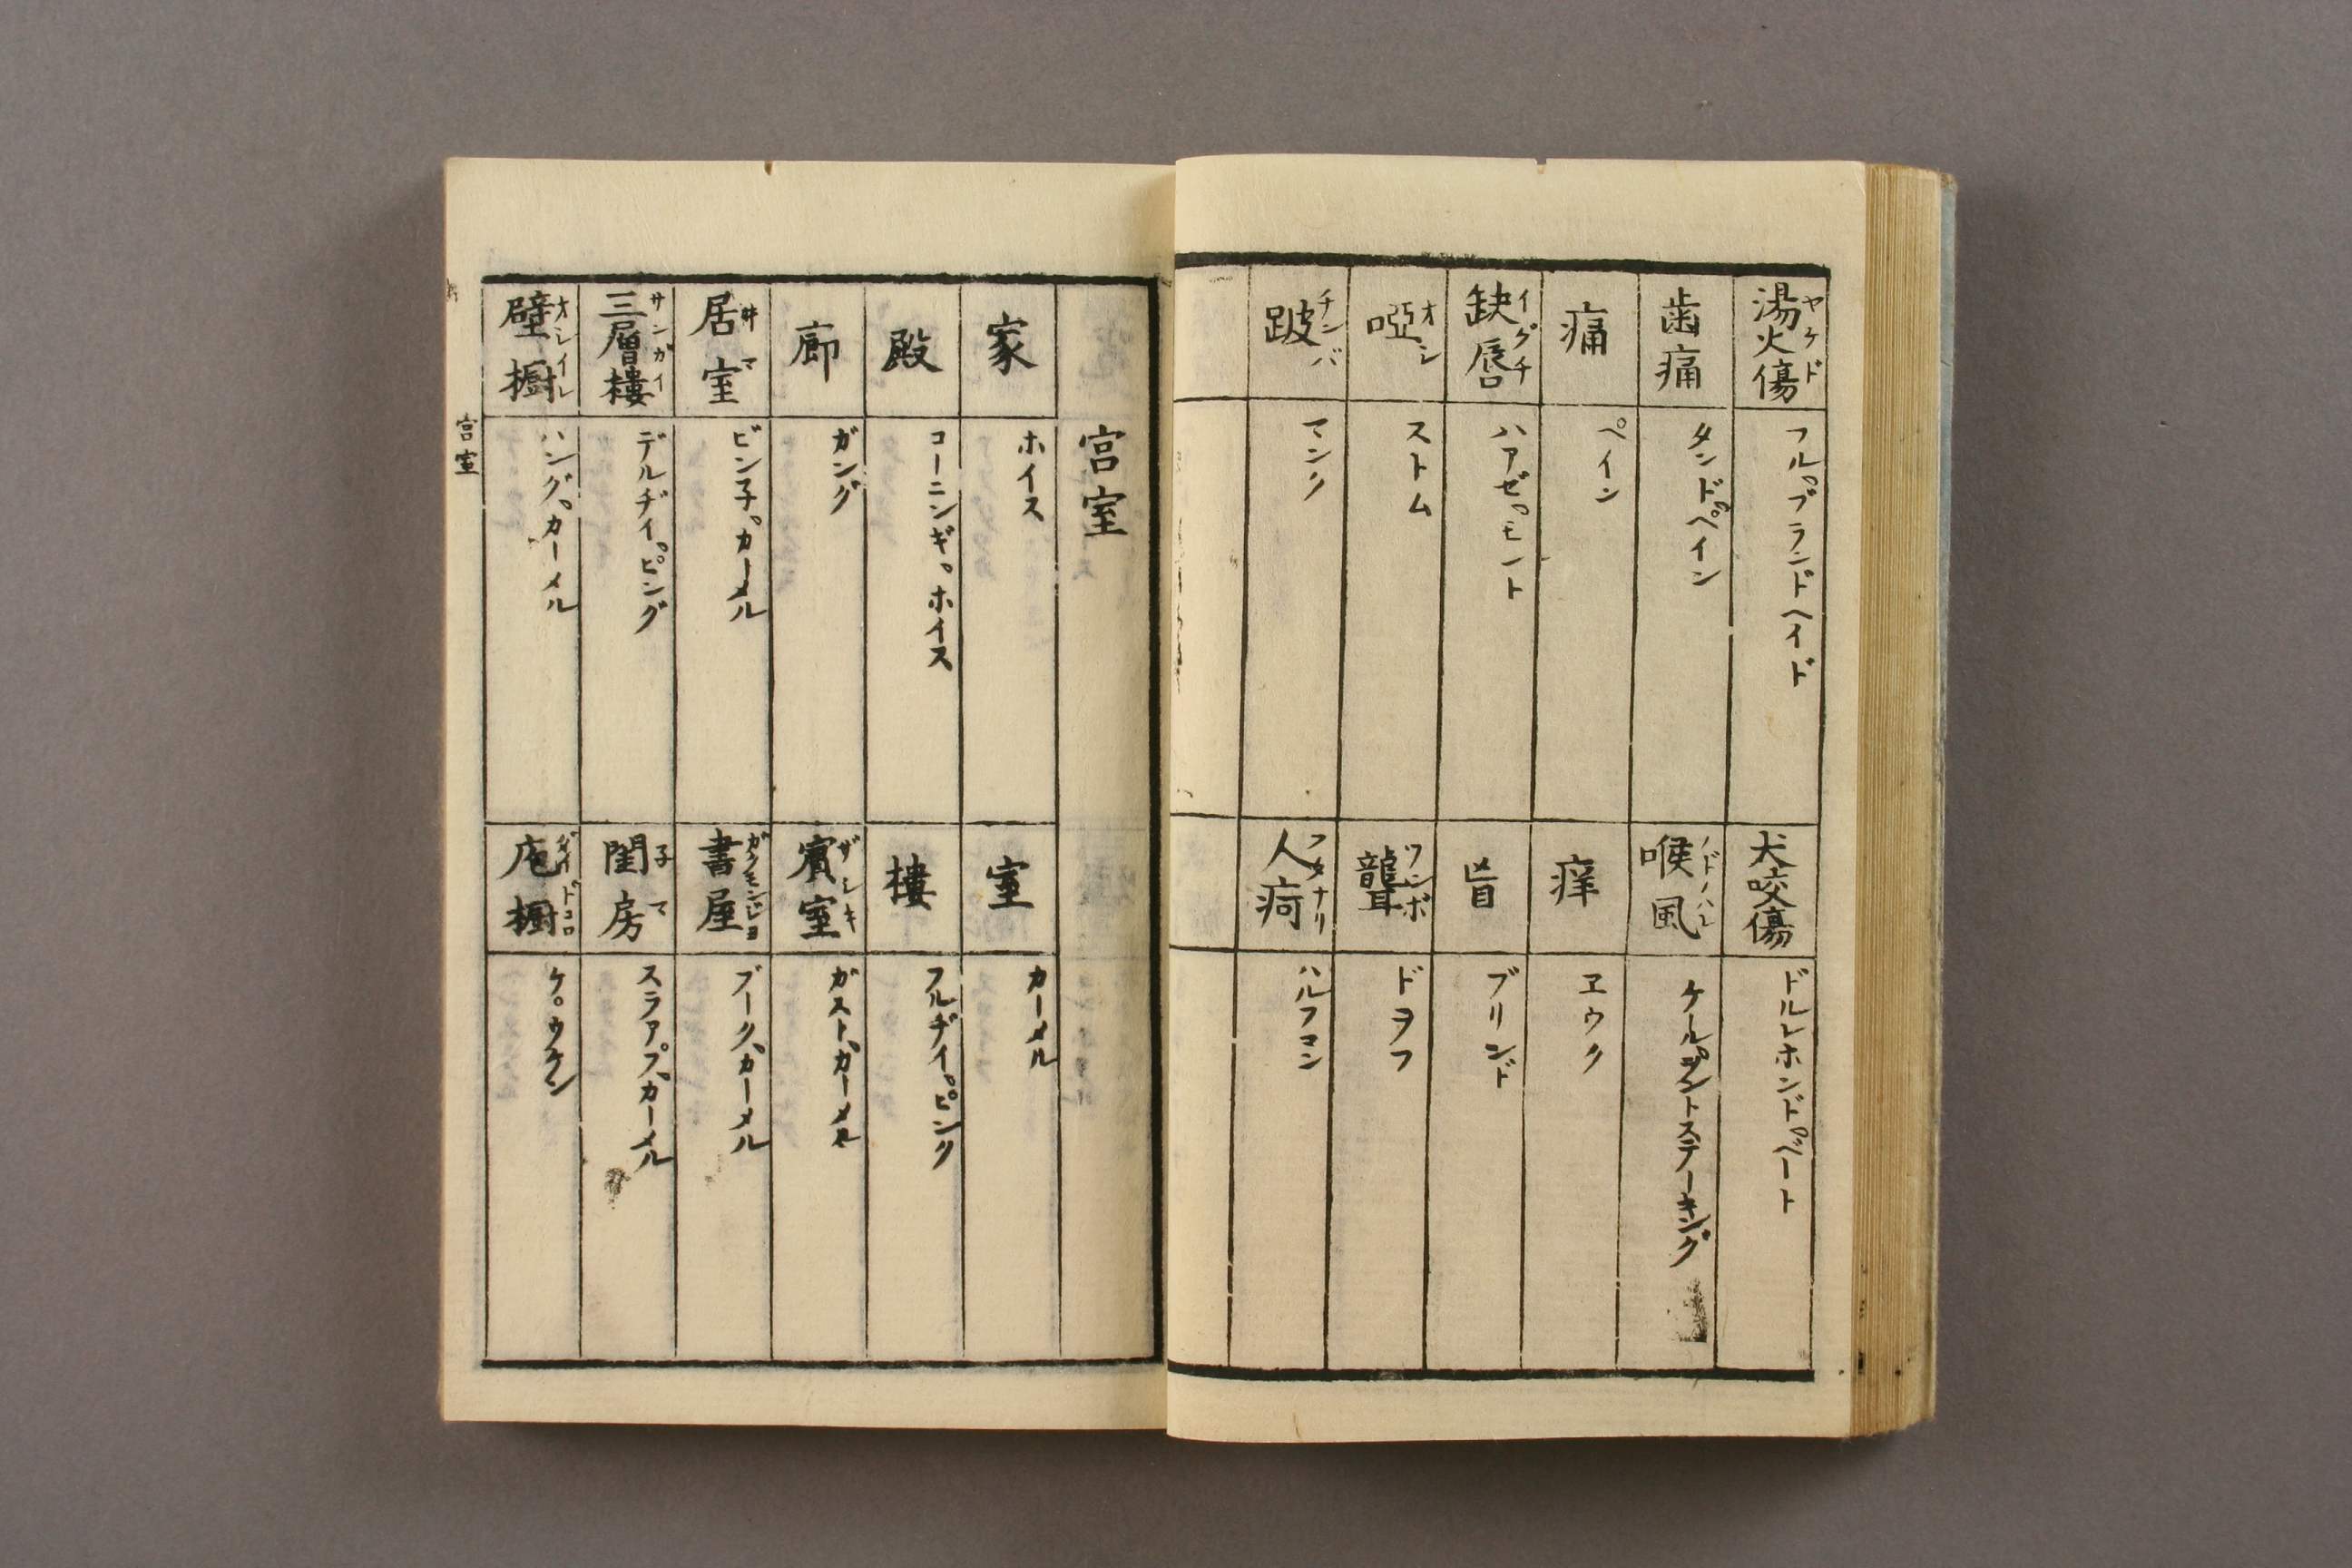 湯火傷 ヤケド
フルブランドヘイド
犬咬傷
ドルレホンドベート
歯痛
タンドペイン
喉風 ノドノハレ
痛
ペイン
痒
ヱウク
缺唇 イグチ
ハアゼモント
盲
ブリンド
啞 オシ
ストム
聾 ツンボ
ドヲフ
跛 チンバ
マンク
人疴 フタナリ
ハルフマン
宮室
家
ホイス
室
カーメル
殿
コーニンギ。ホイス
樓
フルヂイ。ピンク
廊
ガング
賓室 ザシキ
ガスト、カーメル
居室 井マ
ビン子。カーメル
書屋 ガクモンジヨ
ブーク、カーメル
三層樓 サンガイ
デルヂイ。ピング
閨房 子マ
スラアプ、カーメル
壁櫥 オシイレ
ハング。カーメル
庖櫥 ダイドコロ
ケ。ウケン
宮室